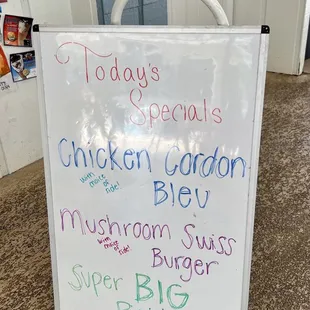 Today's
Specials
Chicken Cordon
Bleu
With choice of
side!
Mushroom Swiss
With choice
of side!
Burger
Super BIG